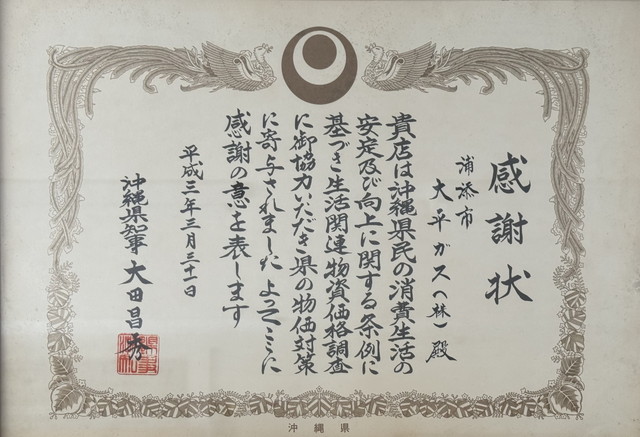 感謝状
浦添市
大平ガス(株)殿
貴店は沖縄県民の消費生活の
安定及び向上に関する条例に
基づき生活関連物資価格調査
に御協力いただき県の物価対策
に寄与されました よってここに
感謝の意を表します
平成三年三月三十一日
沖縄県知事 大田昌秀
沖縄県